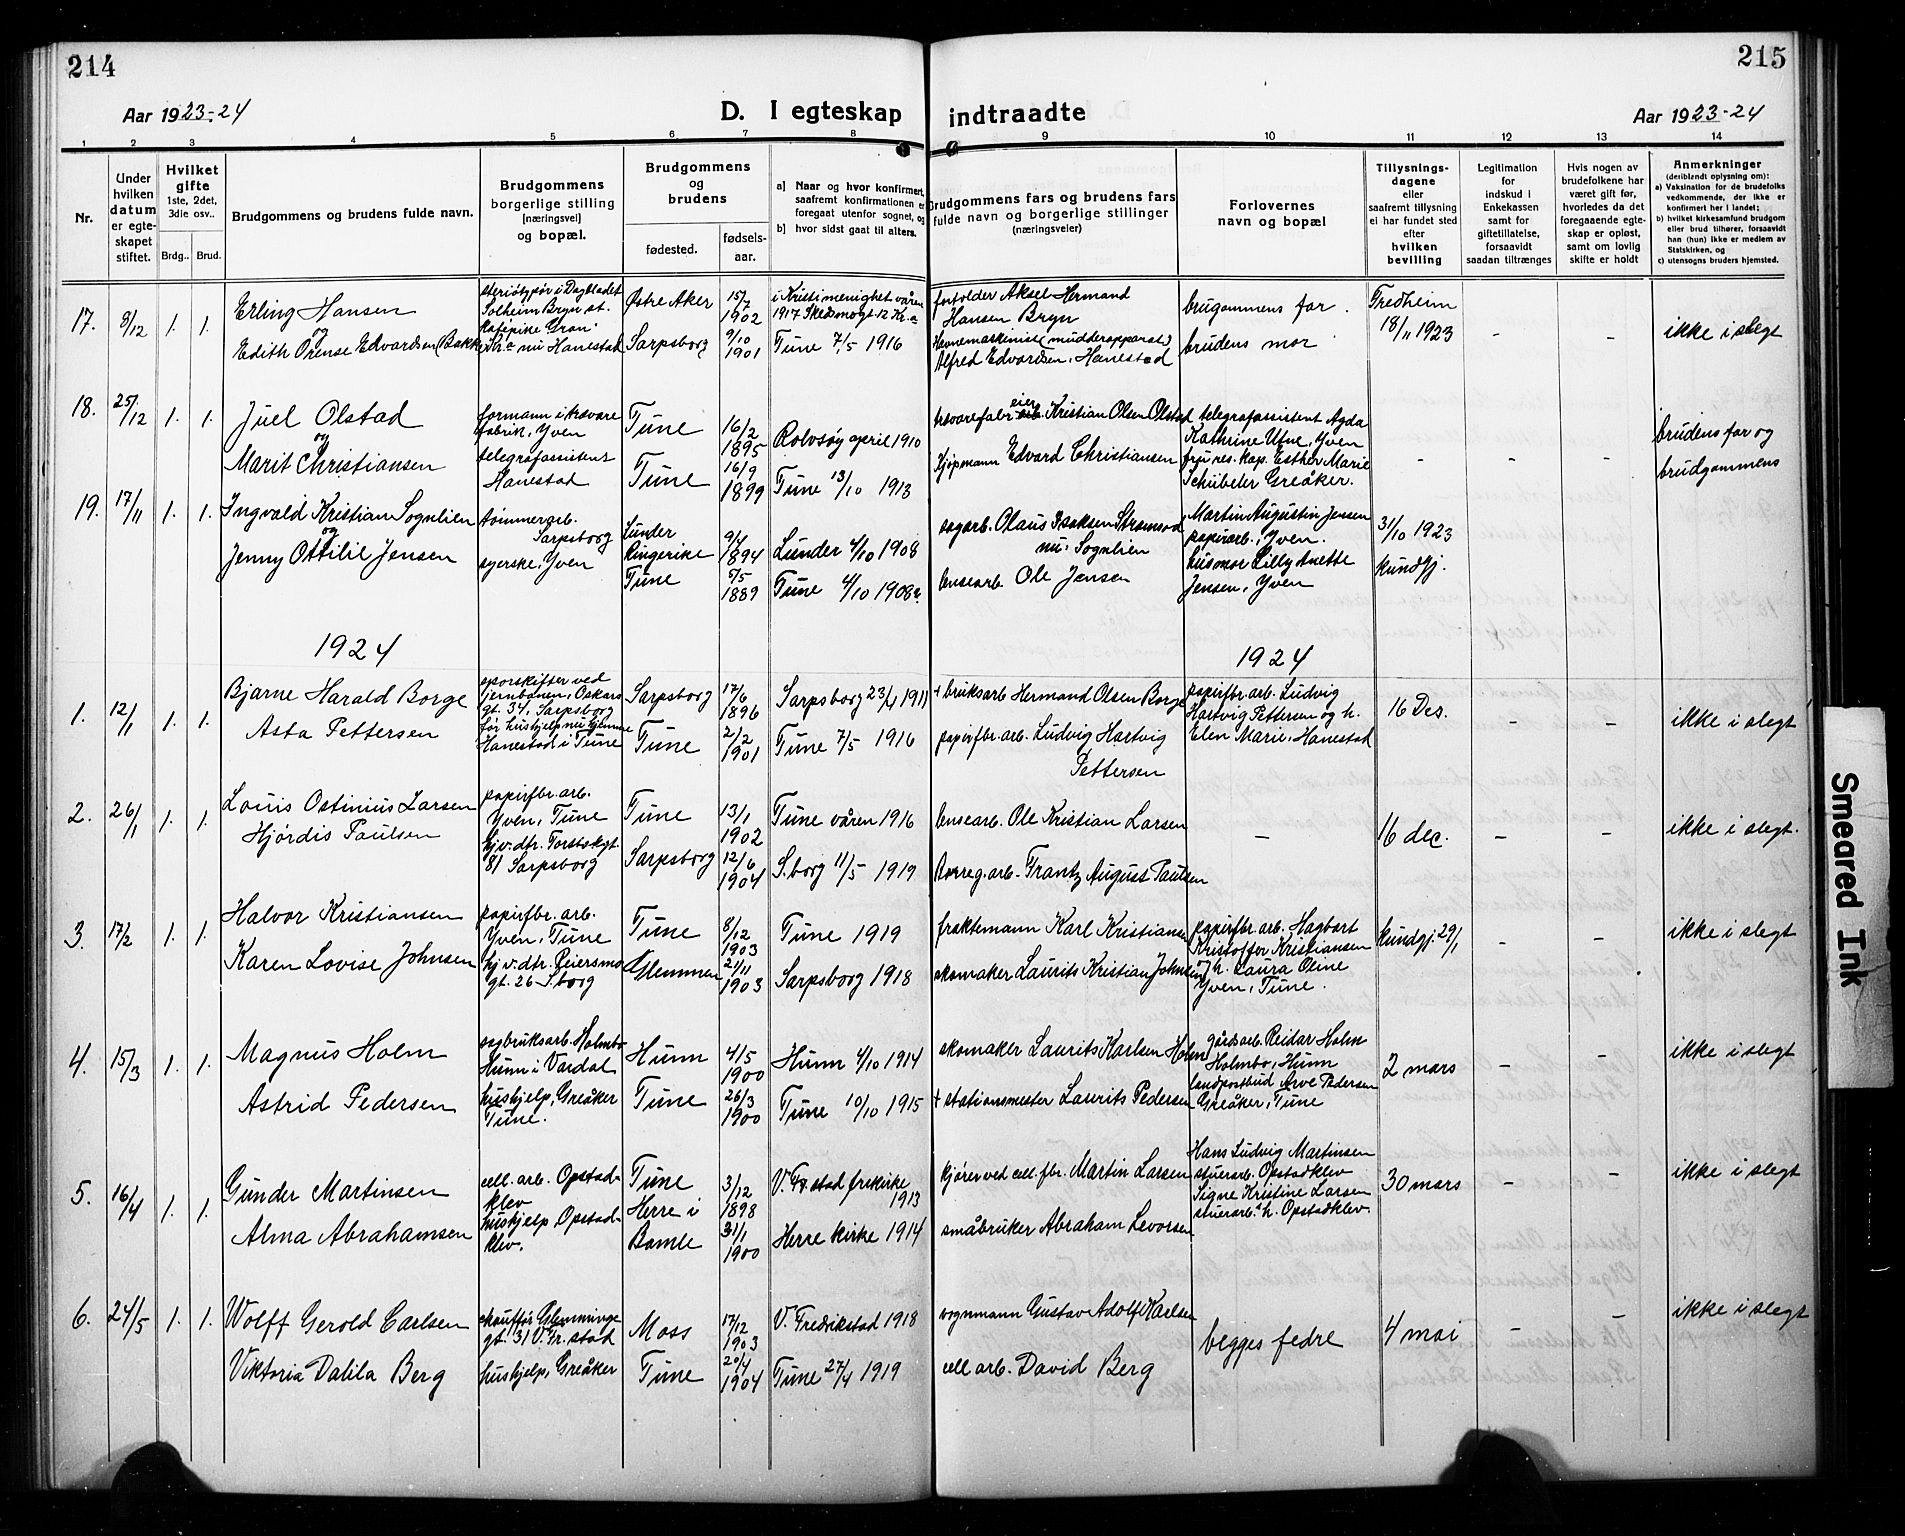 214
215
Aar 1923-24
D. I egteskap indtraadte
Aar 1923-24
1 2 3 4 5 6 7 8 9 10 11 12 13 14
Nr.
Under hvilken datum er egteskapet stiftet.
Hvilket gifte 1ste, 2det, 3die osv..
Brdg.. Brud.
Brudgommens og brudens fulde navn.
Brudgommens borgerlige stilling (næringsvei) og bopæl.
Brudgommens og brudens
fødested. fødsels-aar.
a] Naar og hvor konfirmert, saafremt konfirmationen er foregaat utenfor sognet, og
b] hvor sidst gaat til alters.
Brudgommens fars og brudens fars fulde navn og borgerlige stillinger (næringsveier)
Forlovernes navn og bopæl
Tillysnings-dagene eller saafremt tillysning ei har fundet sted efter hvilken bevilling
Legitimation for indskud i Enkekassen samt for giftetillatelse, forsaavidt saadan tiltrænges
Hvis nogen av brudefolkene har været gift før, hvorledes da det foregaaende egteskap er opløst, samt om lovlig skifte er holdt
Anmerkninger (deriblendt oplysning om):
a) Vaksination for de brudefolks vedkommende, der ikke er konfirmert her i landet;
b) hvilket kirkesamfund brudgom eller brud tilhører, forsaavidt han (hun) ikke er medlem av Statskirken, og
c) utensogns bruders hjemsted.
17. 8/12 1. 1.
Erling Hansen
og
Edith Orense Edvardsen (Bakke)
steriotypør i Dagbladet
Solheim Bryn st.
kafépike Gran
Kr.a nu Hanestad
Østre Aker 15/7 1902
Sarpsborg 9/10 1901
i Kristi menighet våren
1917 Skedsmogt. 12 Kr.a
Tune 7/5 1916
forfolder Aksel Hermand
Hansen Bryn
Havnemaskinist (mudderapparat)
Alfred Edvardsen, Hanestad
brugommens far.
brudens mor
Fredheim
18/11 1923
-
-
ikke i slegt
18. 25/12 1. 1.
Juel Olstad
og
Marit Christiansen
formann i trevare
fabrik, Yven
telegrafassistent
Hanestad
Tune 16/2 1895
Tune 16/9 1899
Rolvsøy april 1910
Tune 13/10 1913
trevarefabr eier Kristian Olsen Olstad
Kjøpmann Edvard Christiansen
telegrafassistent Agda
Kathrine Ufne, Yven
fru res. kap. Esther Marie
Schübeler Greåker.
-
-
-
brudens far og
brudgommens
19. 17/11 1. 1.
Ingvald Kristian Sognlien
og
Jenny Ottilie Jensen
tømmerarb.
Sarpsborg
syerske, Yven
Lunder
Ringerike
Tune
9/4 1894
5/5 1889
Lunder 4/10 1908
Tune 4/10 1908
sagarb. Olaus Isaksen Strømsod
nu: Sognlien
lensearb Ole Jensen
Martin Augustin Jensen
papirarb., Yven.
husmor Lilly Anette
Jensen, Yven
31/10 1923
kundgj.
1924
1924
1. 12/1 1. 1.
Bjarne Harald Borge
Asta Pettersen
sporskifter ved
jernbanen, Oskars
gt. 34, Sarpsborg
før hushjelp nu hjemme
Hanestad i Tune
Sarpsborg 17/6 1896
Tune 2/2 1901
Sarpsborg 23/4 1911
Tune 7/5 1916
+ bruksarb Hermand Olsen Borge
papirfbr. arb. Ludvig Hartvig
Pettersen
papirfbr. arb. Ludvig
Hartvig Pettersen og h.
Elen Marie, Hanestad
16 Des.
-
-
ikke i slegt
2. 26/1 1. 1.
Louis Ostinius Larsen
Hjördis Paulsen
papirfbr. arb.
Yven, Tune
hj. v. dtr. Torsbekgt.
81 Sarpsborg
Tune 13/1 1902
Sarpsborg 12/6 1904
Tune våren 1916
S.borg 11/5 1919
lensearb. Ole Kristian Larsen
Borreg. arb. Frantz August Paulsen
-
16 dec.
-
-
ikke i slegt.
3. 17/2 1. 1.
Halvor Kristiansen
Karen Lovise Johnsen
papirfbr. arb.
Yven, Tune
hj v. dtr. Reiersmo
gt. 26 S.borg
Tune 8/12 1903
Glemmen 21/11 1903
Tune 1919
Sarpsborg 1918
fraktemann Karl Kristiansen
skomaker Laurits Kristian Johnsen
papirfbr. arb. Hagbart
Kristoffer Kristiansen
og h. Laura Oline
Yven, Tune.
kundgj: 29/1
-
-
ikke i slegt
4. 15/3 1. 1.
Magnus Holm
Astrid Pedersen
sagbruksarb. Holmbo
Hunn i Vardal
hushjelp, Greåker
Tune.
Hunn 4/5 1900
Tune 26/3 1900
Hunn 4/10 1914
Tune 10/10 1915
skomaker Laurits Karlsen Holm
+ stationsmester Laurits Pedersen
gårdsarb. Reidar Holm
Holmbo, Hunn
landpostbud Arve Pedersen
Greåker, Tune
2 mars
-
-
ikke i slegt
5. 16/4 1. 1.
Gunder Martinsen
Alma Abrahamsen
cell. arb. Opstad-
klev
hushjelp Opstad-
klev.
Tune
Herre i
Bamle
3/12 1898
31/1 1900
V. Fr.stad frikirke
1913
Herre kirke 1914
kjører ved cell. fbr. Martin Larsen
småbruker Abraham Levorsen
Hans Ludvig Martinsen
stuerarb. Opstadklev
Signe Kristine Larsen
stuerarb. h. Opstadklev.
30 mars
-
-
ikke i slegt
6. 24/5 1. 1.
Wolff Gerold Carlsen
Viktoria Dalila Berg
chauffør Glemminge
gt. 31 V. Fr. stad
hushjelp, Greåker
Moss 17/12 1903
Tune 20/4 1904
V. Fredrikstad 1918
Tune 27/4 1919
vognmann Gustav Adolf Karlsen
cell arb. David Berg
begges fedre
4 mai
-
-
ikke i slegt
Smeared Ink